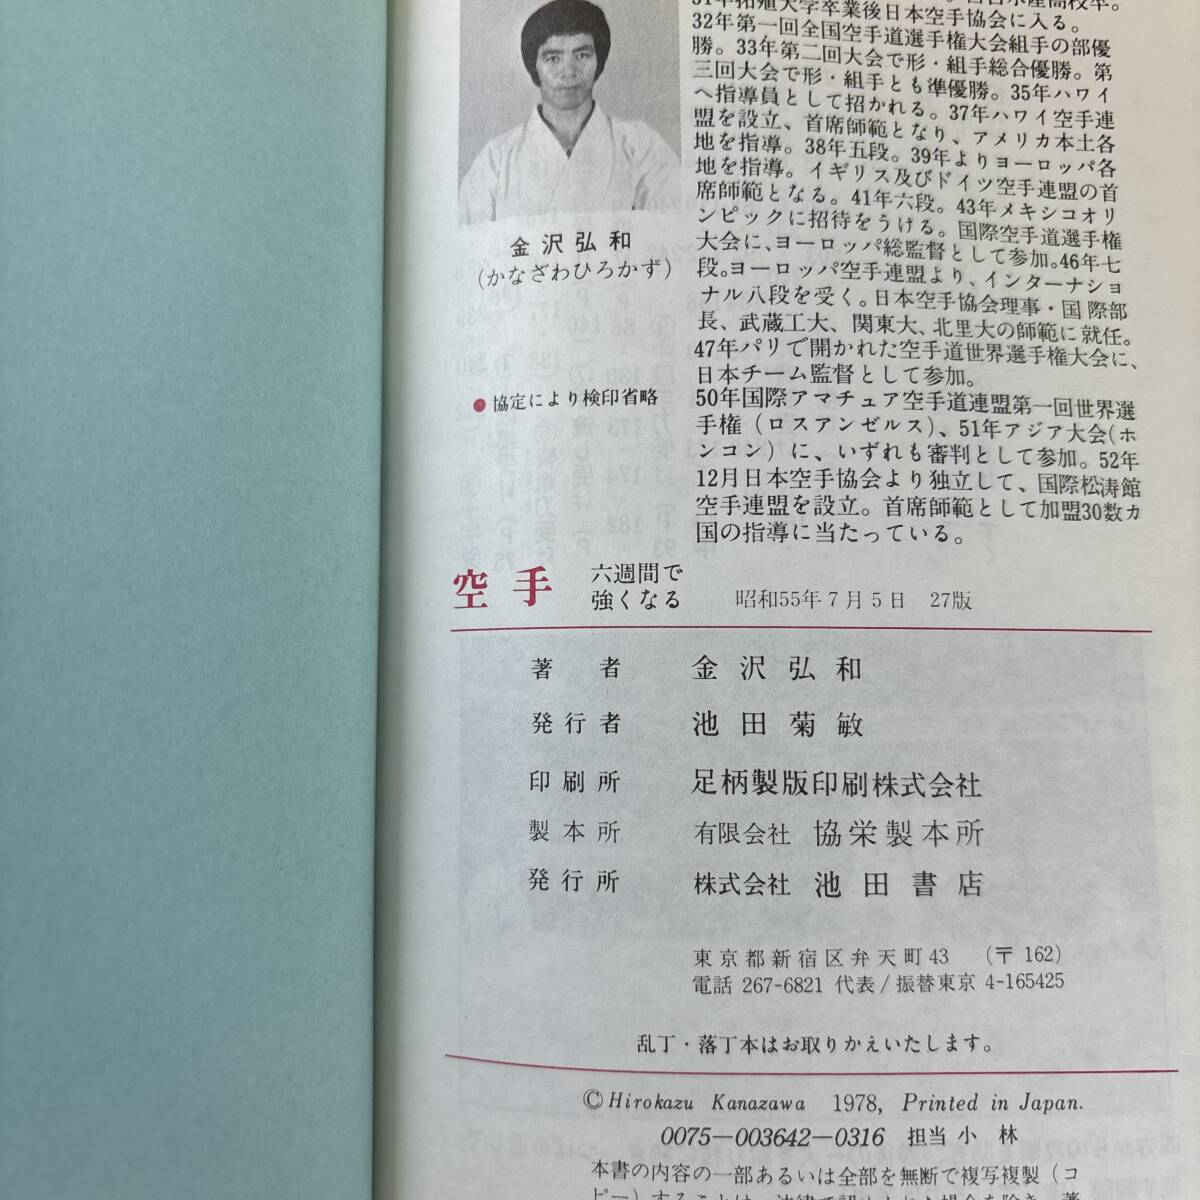 31年拓殖大学卒業後日本空手協会に入る。
32年第一回全国空手道選手権大会組手の部優
勝。33年第二回大会で形・組手総合優勝。第
三回大会で形・組手とも準優勝。35年ハワイ
へ指導員として招かれる。37年ハワイ空手連
盟を設立、首席師範となり、アメリカ本土各
地を指導。38年五段。39年よりヨーロッパ各
地を指導。イギリス及びドイツ空手連盟の首
席師範となる。41年六段。43年メキシコオリ
ンピックに招待をうける。国際空手道選手権
大会に、ヨーロッパ総監督として参加。46年七
段。ヨーロッパ空手連盟より、インターナショ
ナル八段を受く。日本空手協会理事・国際部
長、武蔵工大、関東大、北里大の師範に就任。
47年パリで開かれた空手道世界選手権大会に、
日本チーム監督として参加。
50年国際アマチュア空手道連盟第一回世界選
手権（ロスアンゼルス）、51年アジア大会（ホ
ンコン）に、いずれも審判として参加。52年
12月日本空手協会より独立して、国際松涛館
空手連盟を設立。首席師範として加盟30数カ
国の指導に当たっている。
金沢弘和
（かなざわひろかず）
●協定により検印省略
空手 六週間で
強くなる 昭和55年7月5日 27版
著者 金沢弘和
発行者 池田菊敏
印刷所 足柄製版印刷株式会社
製本所 有限会社 協栄製本所
発行所 株式会社 池田書店
東京都新宿区弁天町43 （〒162）
電話 267-6821 代表/振替東京 4-165425
乱丁・落丁本はお取りかえいたします。
©Hirokazu Kanazawa 1978, Printed in Japan.
0075—003642—0316 担当 小林
本書の内容の一部あるいは全部を無断で複写複製（コ